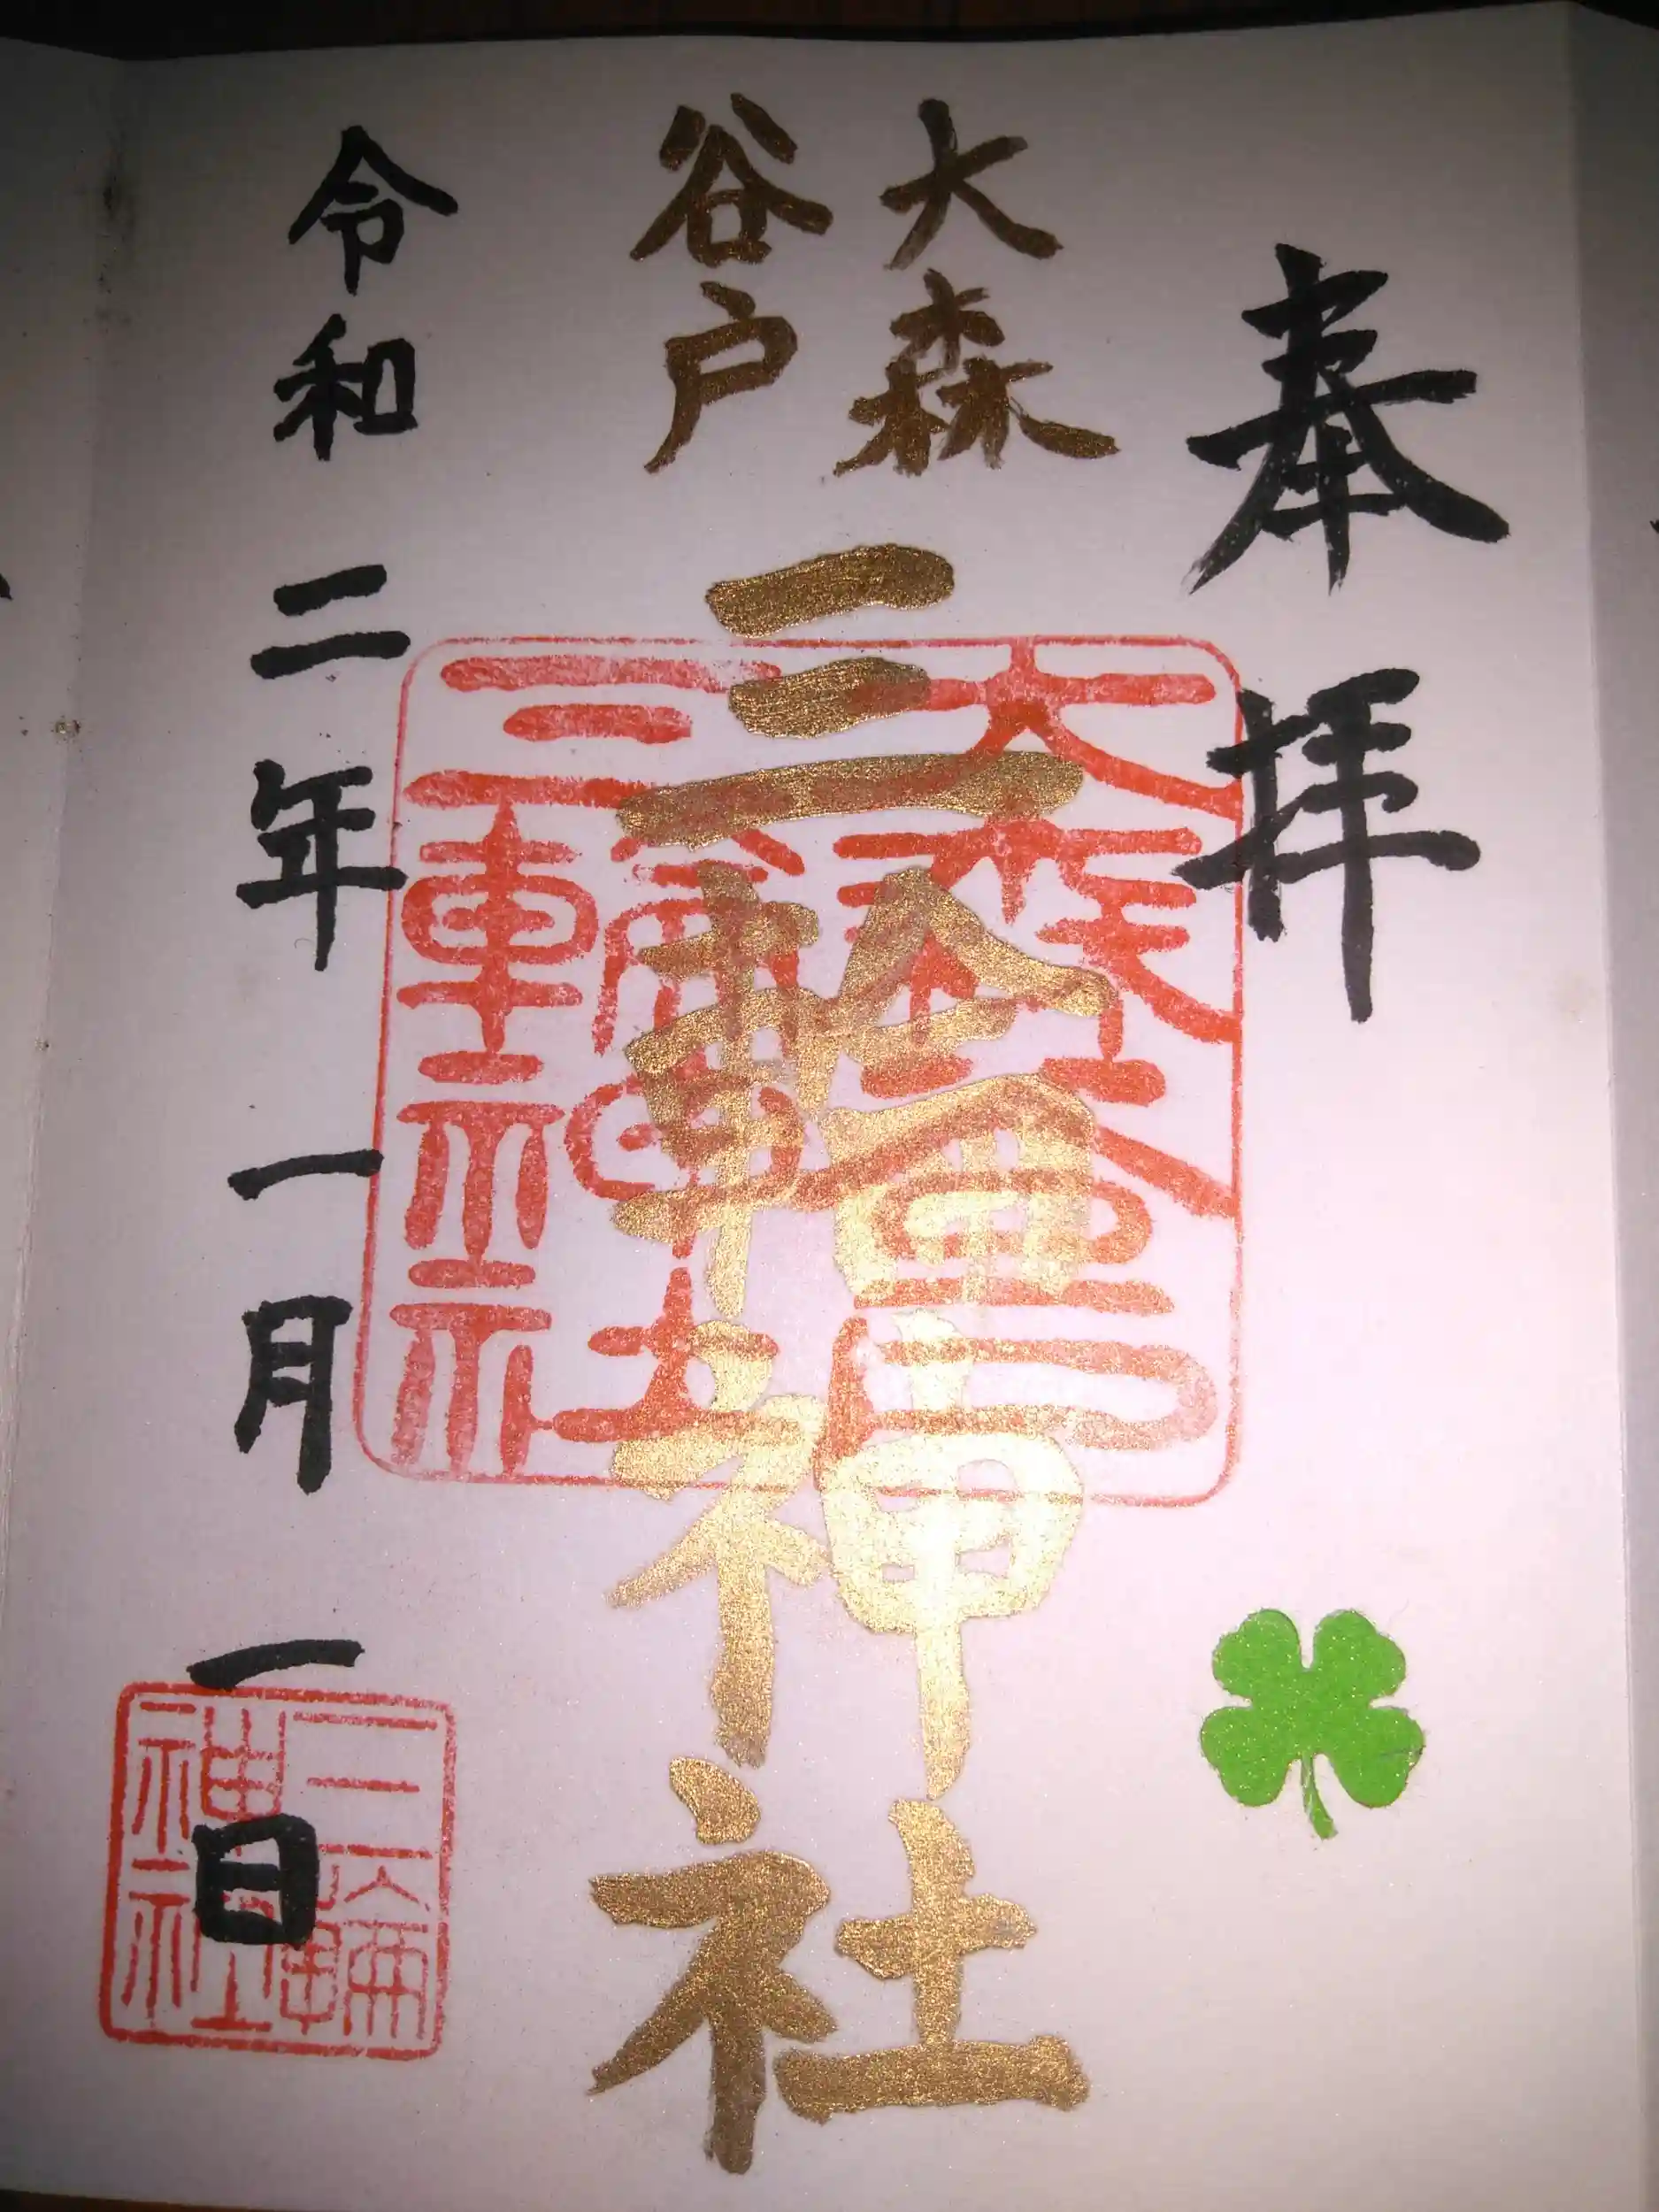 奉拝
大森
谷戸
三輪神社
令和二年一月一日
大森谷戸
三輪神社
三輪
神社